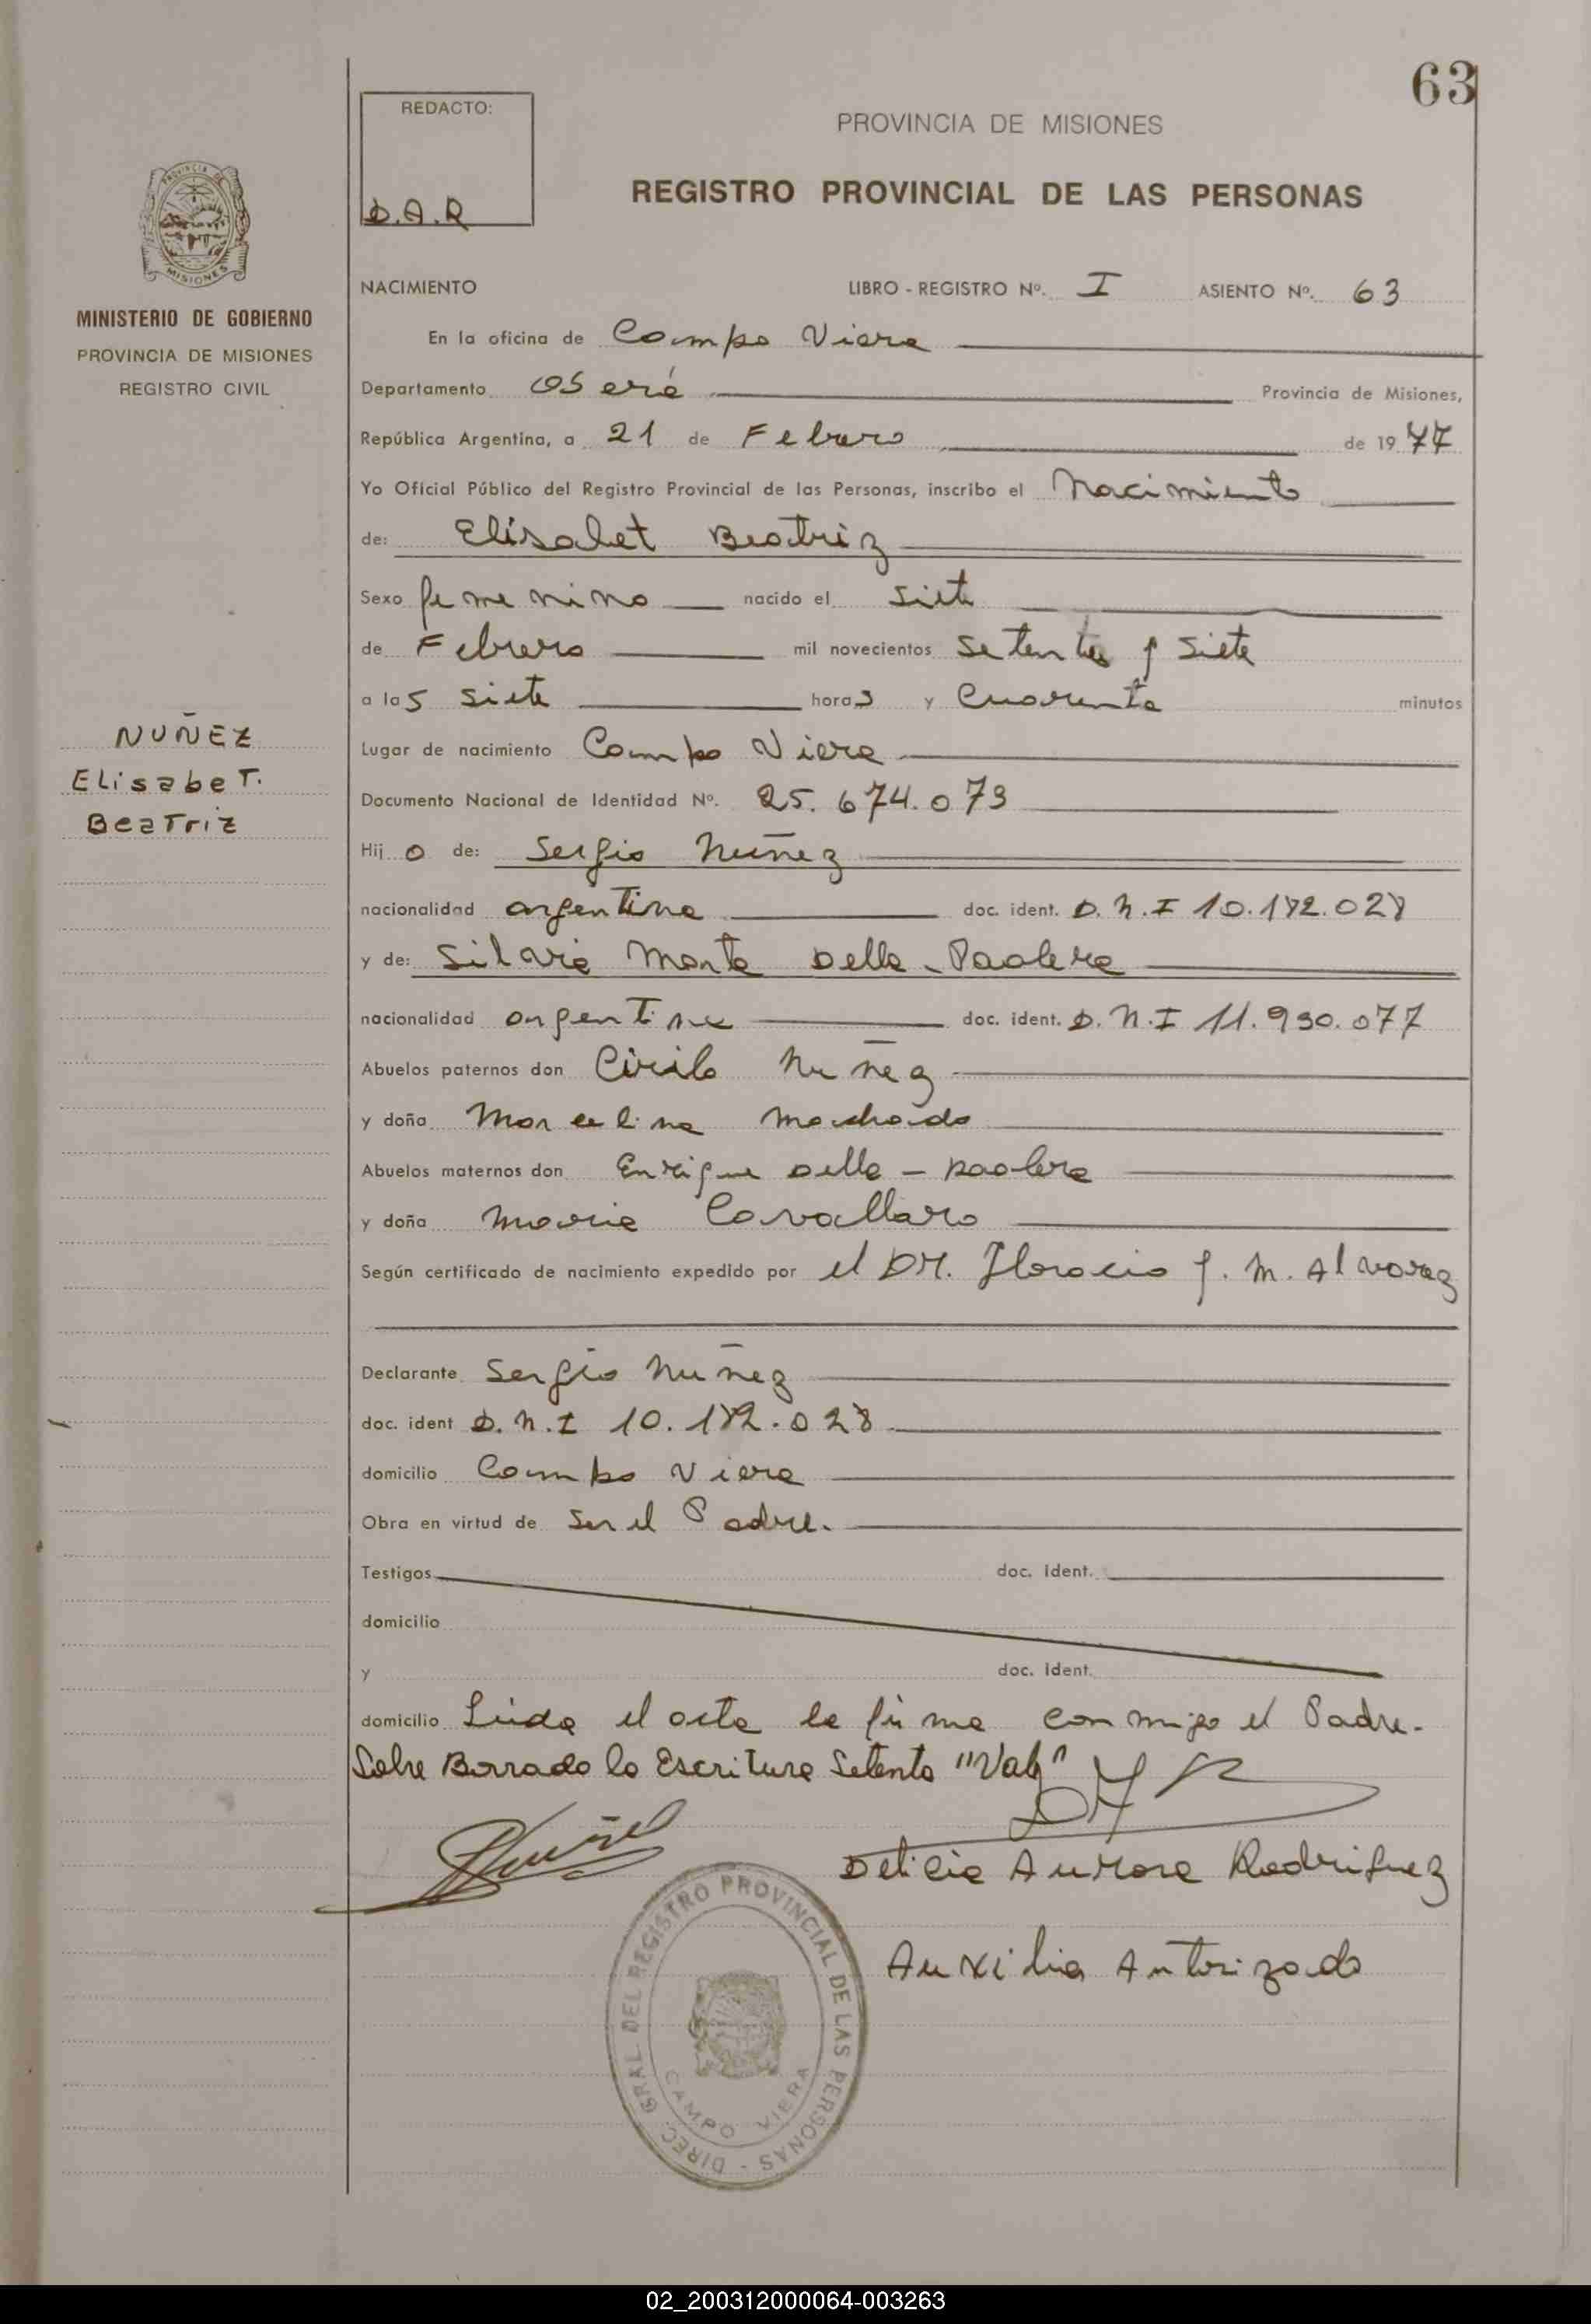 63
REDACTO:
D.A.R
PROVINCIA DE MISIONES
REGISTRO PROVINCIAL DE LAS PERSONAS
PROVINCIA DE
MISIONES
MINISTERIO DE GOBIERNO
PROVINCIA DE MISIONES
REGISTRO CIVIL
NUÑEZ
ELisabeT.
BeaTriz
NACIMIENTO LIBRO - REGISTRO Nº. I ASIENTO Nº. 63
En la oficina de Campo Viera
Departamento Oberá Provincia de Misiones,
República Argentina, a 21 de Febrero de 1977
Yo Oficial Público del Registro Provincial de las Personas, inscribo el Nacimiento
de: Elisabet Beatriz
Sexo femenino nacido el siete
de Febrero mil novecientos setenta y siete
a las siete horas y cuarenta minutos
Lugar de nacimiento Campo Viera
Documento Nacional de Identidad Nº. 25.674.073
Hijo de: Sergio Nuñez
nacionalidad argentina doc. ident. D.N.I 10.182.028
y de: Silvia Marta Della-Paolera
nacionalidad argentina doc. ident. D.N.I 11.930.077
Abuelos paternos don Cirilo Nuñez
y doña Marcelina Machado
Abuelos maternos don Enrique Della-Paolera
y doña Maria Cavallaro
Según certificado de nacimiento expedido por el DR. Horacio J. M. Alvarez
Declarante Sergio Nuñez
doc. ident D.N.I 10.182.028
domicilio Campo Viera
Obra en virtud de ser el Padre.
Testigos doc. ident.
domicilio
y doc. ident.
domicilio Leida el acta la firma conmigo el Padre.
Sobre Borrado la Escritura Setenta "Vale"
Delicia Aurora Rodriguez
Auxilia Autorizada
DIREC. GRAL. DEL REGISTRO PROVINCIAL DE LAS PERSONAS -
CAMPO VIERA
02_200312000064-003263